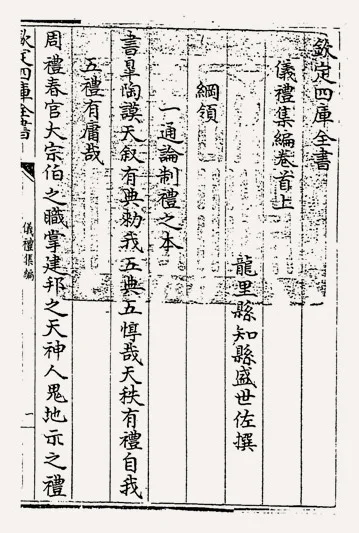 欽定四庫全書
儀禮集編卷首上
龍里縣知縣盛世佐撰
綱領
一通論制禮之本
書臯陶謨天叙有典勑我五典五惇哉天秩有禮自我
五禮有庸哉
周禮春官大宗伯之職掌建邦之天神人鬼地示之禮
欽定四庫全書
儀禮集編
一